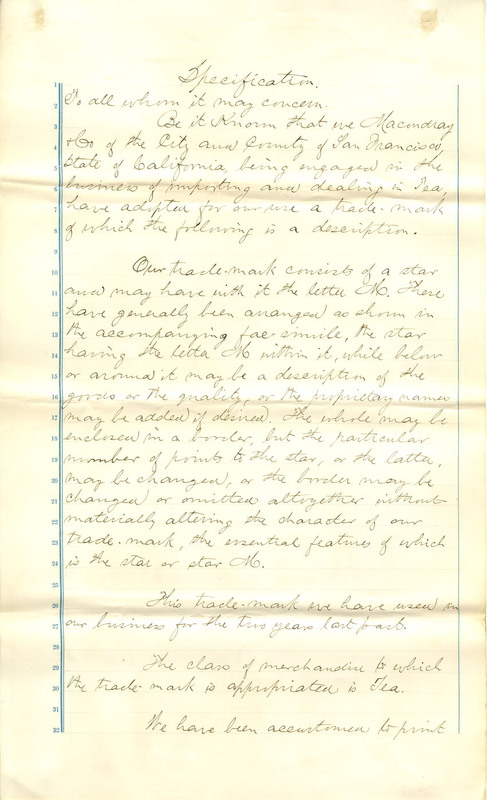 Specification.
To all whom it may concern.
Be it Known that we Macondray
& Co of the City and County of San Francisco,
State of California, being engaged in the
business of importing and dealing in Tea,
have adopted for our use a trade-mark
of which the following is a description.
Our trade-mark consists of a star
and may have with it the letter M. These
have generally been arranged as shown in
the accompanying fac-simile, the star
having the letter M within it, while below
or around it may be a description of the
goods or the quality, or the proprietary names
may be added if desired. The whole may be
enclosed in a border, but the particular
number of points to the star, or the latter,
may be changed, or the border may be
changed or omitted altogether without
materially altering the character of our
trade-mark, the essential features of which
is the star or star M.
This trade-mark we have used in
our business for the two years last past.
The class of merchandise to which
the trade-mark is appropriated is Tea.
We have been accustomed to print
1
2
3
4
5
6
7
8
9
10
11
12
13
14
15
16
17
18
19
20
21
22
23
24
25
26
27
28
29
30
31
32